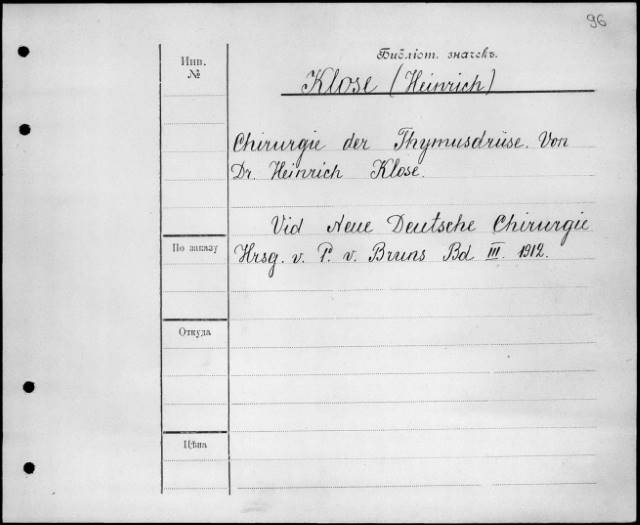 96
Библіот. значекъ.
Инв.
№
Klose (Heinrich)
Chirurgie der Thymusdrüse. Von
Dr. Heinrich Klose.
Vid Neue Deutsche Chirurgie
По заказу
Hrsg. v. P. v. Bruns Bd III. 1912.
Откуда
Цѣна